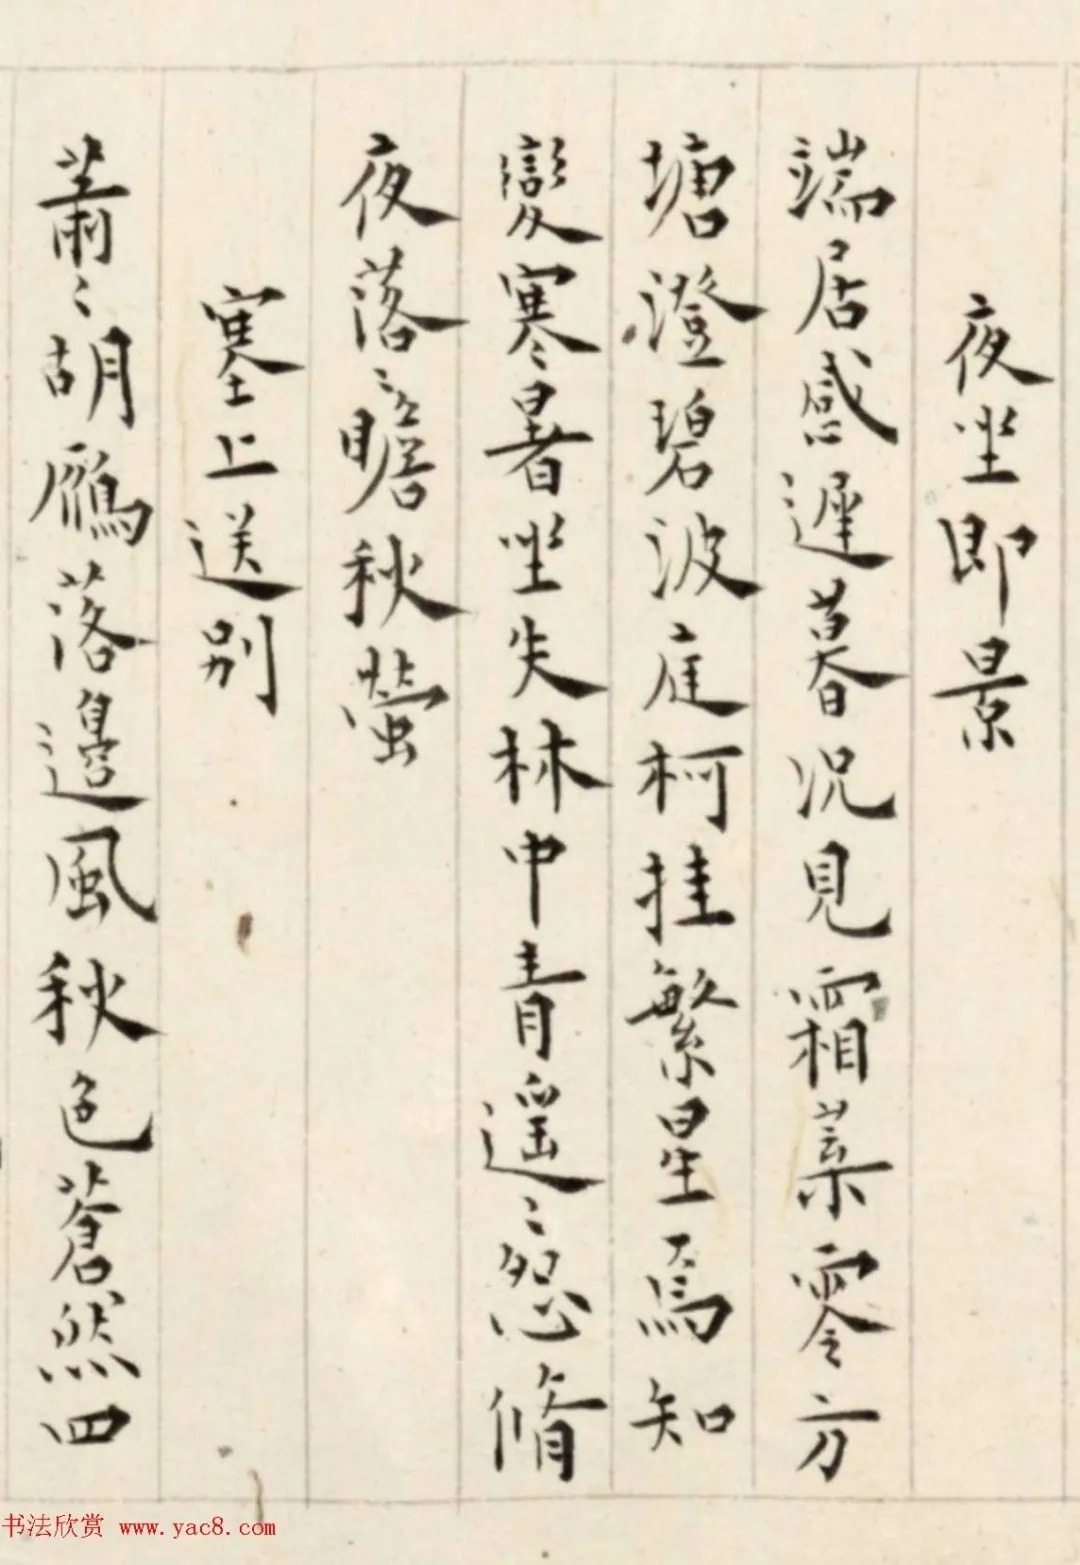 夜坐即景
端居感遲暮况見霜葉零方
塘澄碧波庭柯挂繁星焉知
變寒暑坐失林中青遥〻怨脩
夜落〻瞻秋螢
塞上送别
蕭〻胡鴈落邊風秋色蒼然四
书法欣赏 www.yac8.com